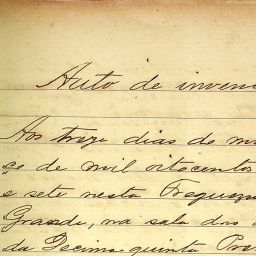 Auto de inven
Aos treze dias do m
ço de mil oitocentos
e sete nesta Freguez
Grande, na sala das
da Decima quinta Pr